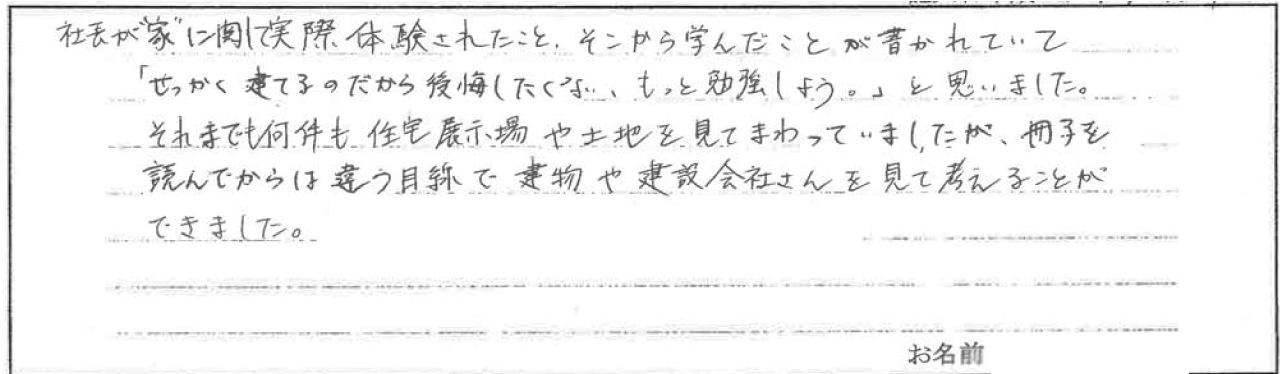 社長が“家”に関して実際体験されたこと、そこから学んだことが書かれていて
「せっかく建てるのだから後悔したくない、もっと勉強しよう。」と思いました。
それまでも何件も住宅展示場や土地を見てまわっていましたが、冊子を
読んでからは違う目線で建物や建設会社さんを見て考えることが
できました。
お名前